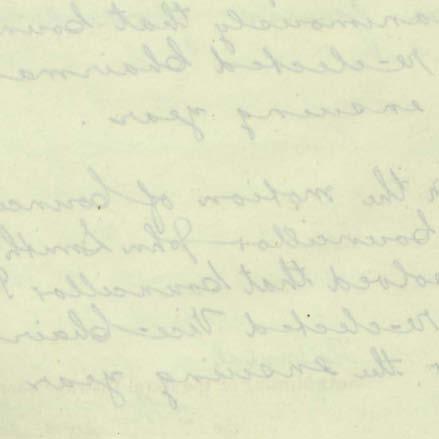 animously that Coun
re-elected Chairma
ensuing year.
the motion of Counc
Councillor John Smith
solved that Councillor
re-elected Vice-Chair
the ensuing year